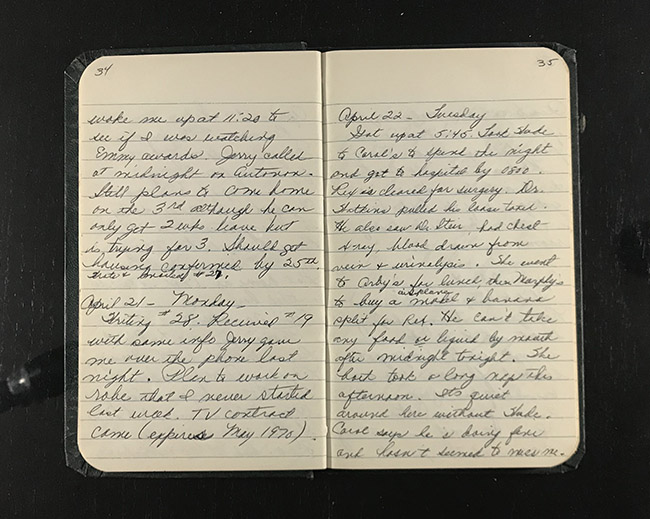 34
woke me up at 11:20 to
see if I was watching
Emmy awards. Jerry called
at midnight on Autovon.
Still plans to come home
on the 3rd although he can
only get 2 wks leave but
is trying for 3. Should get
housing confirmed by 25th.
Wrote & #27.
April 21 - Monday -
Writing #28. Received #19
with same info Jerry gave
me over the phone last
night. Plan to work on
robe that I never started
last week. TV contract
came (expires May 1970).
35
April 22 - Tuesday
Got up at 5:45. Took
to Carol's to spend the night
and got to hospital by 0800.
Rex is cleared for surgery. Dr.
pulled his loose tooth.
He also saw Dr. had chest
Xray, blood drawn from
vein & urinalysis. The went
to Arby's for lunch, then Murphy's
to buy a airplane model & banana
split for Rex. He can't take
any food or liquid by mouth
after midnight tonight. The
took a long nap this
afternoon. Its quiet
around here without
Carol says he is doing fine
and hasn't seemed to miss me.